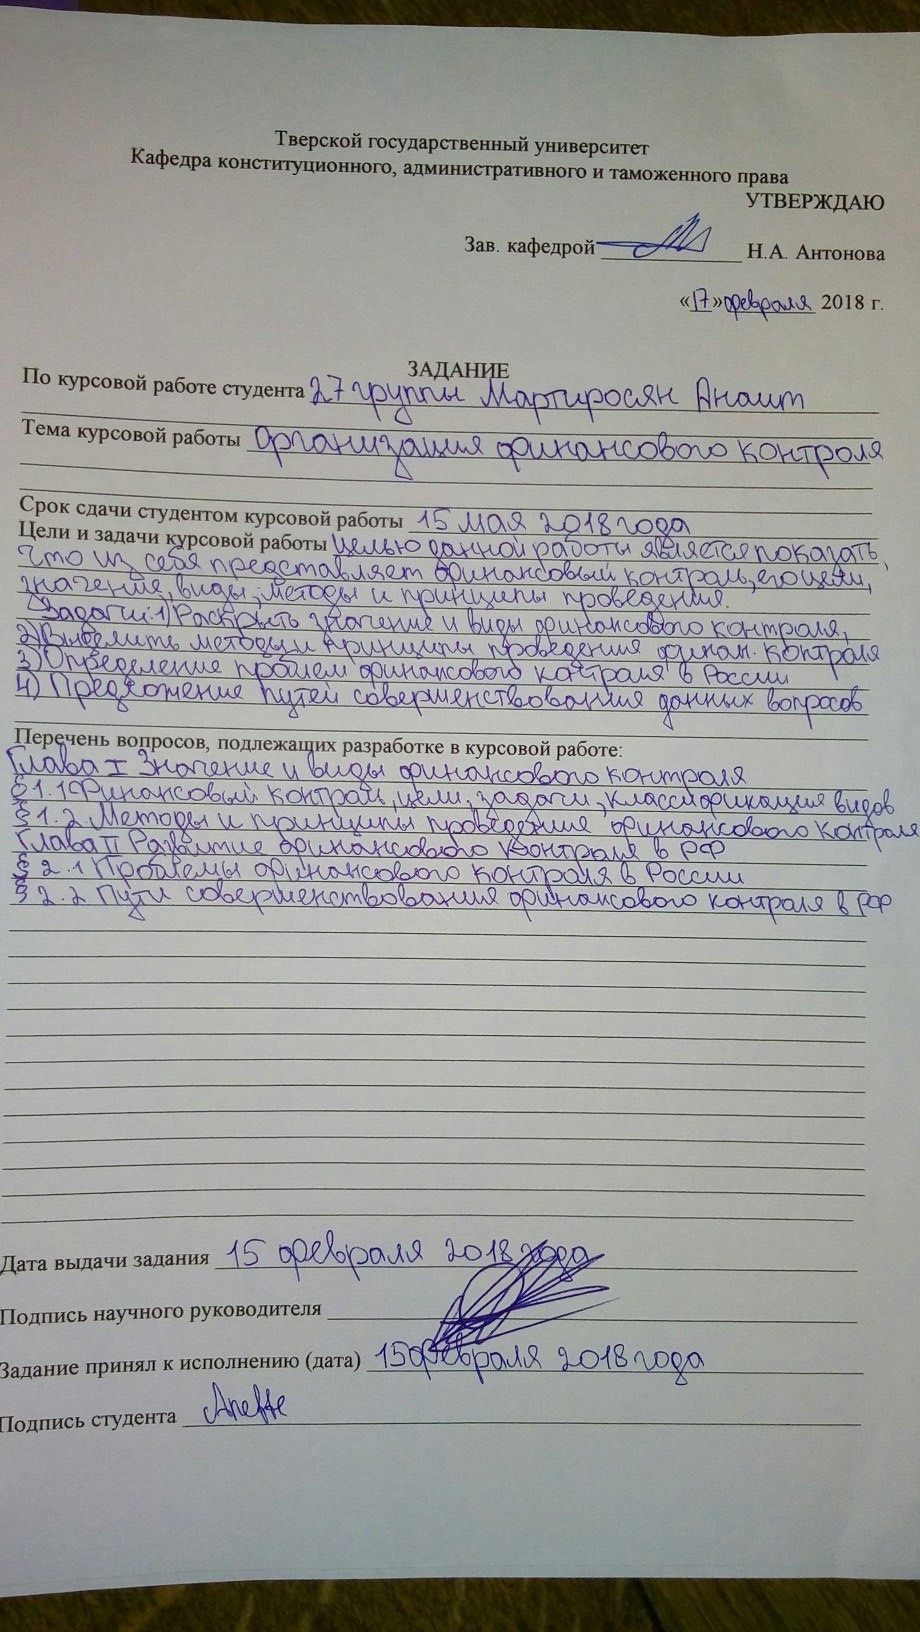 Тверской государственный университет
Кафедра конституционного, административного и таможенного права
УТВЕРЖДАЮ
Зав. кафедрой Н.А. Антонова
«17» февраля 2018 г.
ЗАДАНИЕ
По курсовой работе студента 27 группы Мартиросян Анаит
Тема курсовой работы Организация финансового контроля
Срок сдачи студентом курсовой работы 15 мая 2018 года
Цели и задачи курсовой работы Целью данной работы является показать,
что из себя представляет финансовый контроль, его цели,
значения, виды, методы и принципы проведения.
Задачи: 1) Раскрыть значение и виды финансового контроля,
2) Выделить методы и принципы проведения финан. контроля
3) Определение проблем финансового контроля в России
4) Предложение путей совершенствования данных вопросов
Перечень вопросов, подлежащих разработке в курсовой работе:
Глава I Значение и виды финансового контроля
§ 1.1 Финансовый контроль, цели, задачи, классификация видов
§ 1.2 Методы и принципы проведения финансового контроля
Глава II Развитие финансового контроля в РФ
§ 2.1 Проблемы финансового контроля в России
§ 2.2 Пути совершенствования финансового контроля в РФ
Дата выдачи задания 15 февраля 2018 года
Подпись научного руководителя
Задание принял к исполнению (дата) 15 февраля 2018 года
Подпись студента